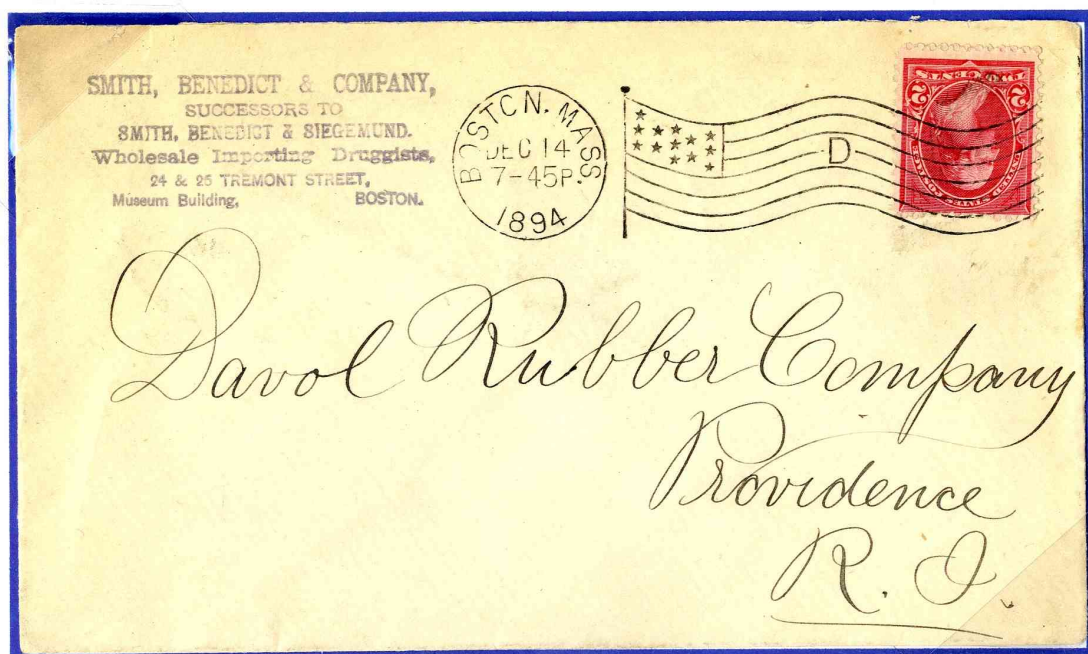 SMITH, BENEDICT & COMPANY,
SUCCESSORS TO
SMITH, BENEDICT & SIEGEMUND.
Wholesale Importing Druggists,
24 & 25 TREMONT STREET,
Museum Building, BOSTON.
BOSTON. MASS
DEC 14
7-45P.
1894
D
2 2
UNITED STATES POSTAGE
Davol Rubber Company
Providence
R. I.